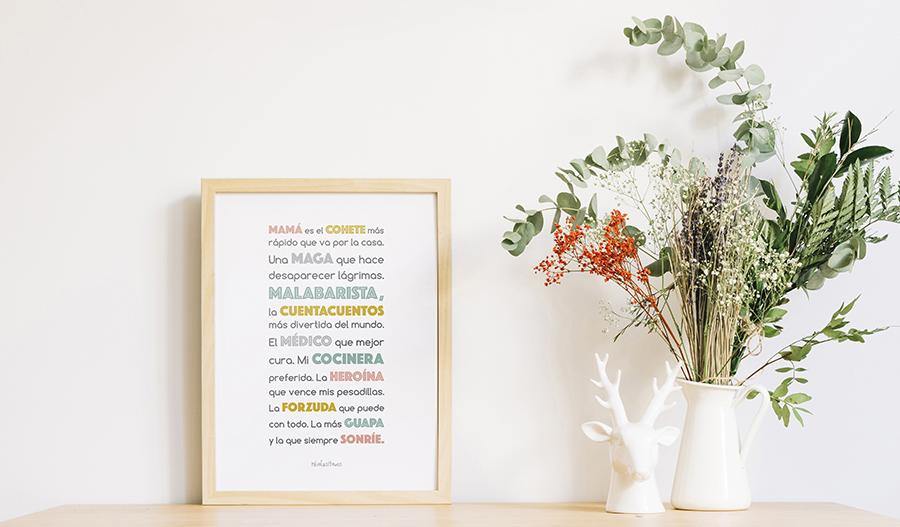 MAMÁ es el COHETE más
rápido que va por la casa.
Una MAGA que hace
desaparecer lágrimas.
MALABARISTA,
la CUENTACUENTOS
más divertida del mundo.
El MÉDICO que mejor
cura. Mi COCINERA
preferida. La HEROÍNA
que vence mis pesadillas.
La FORZUDA que puede
con todo. La más GUAPA
y la que siempre SONRÍE.